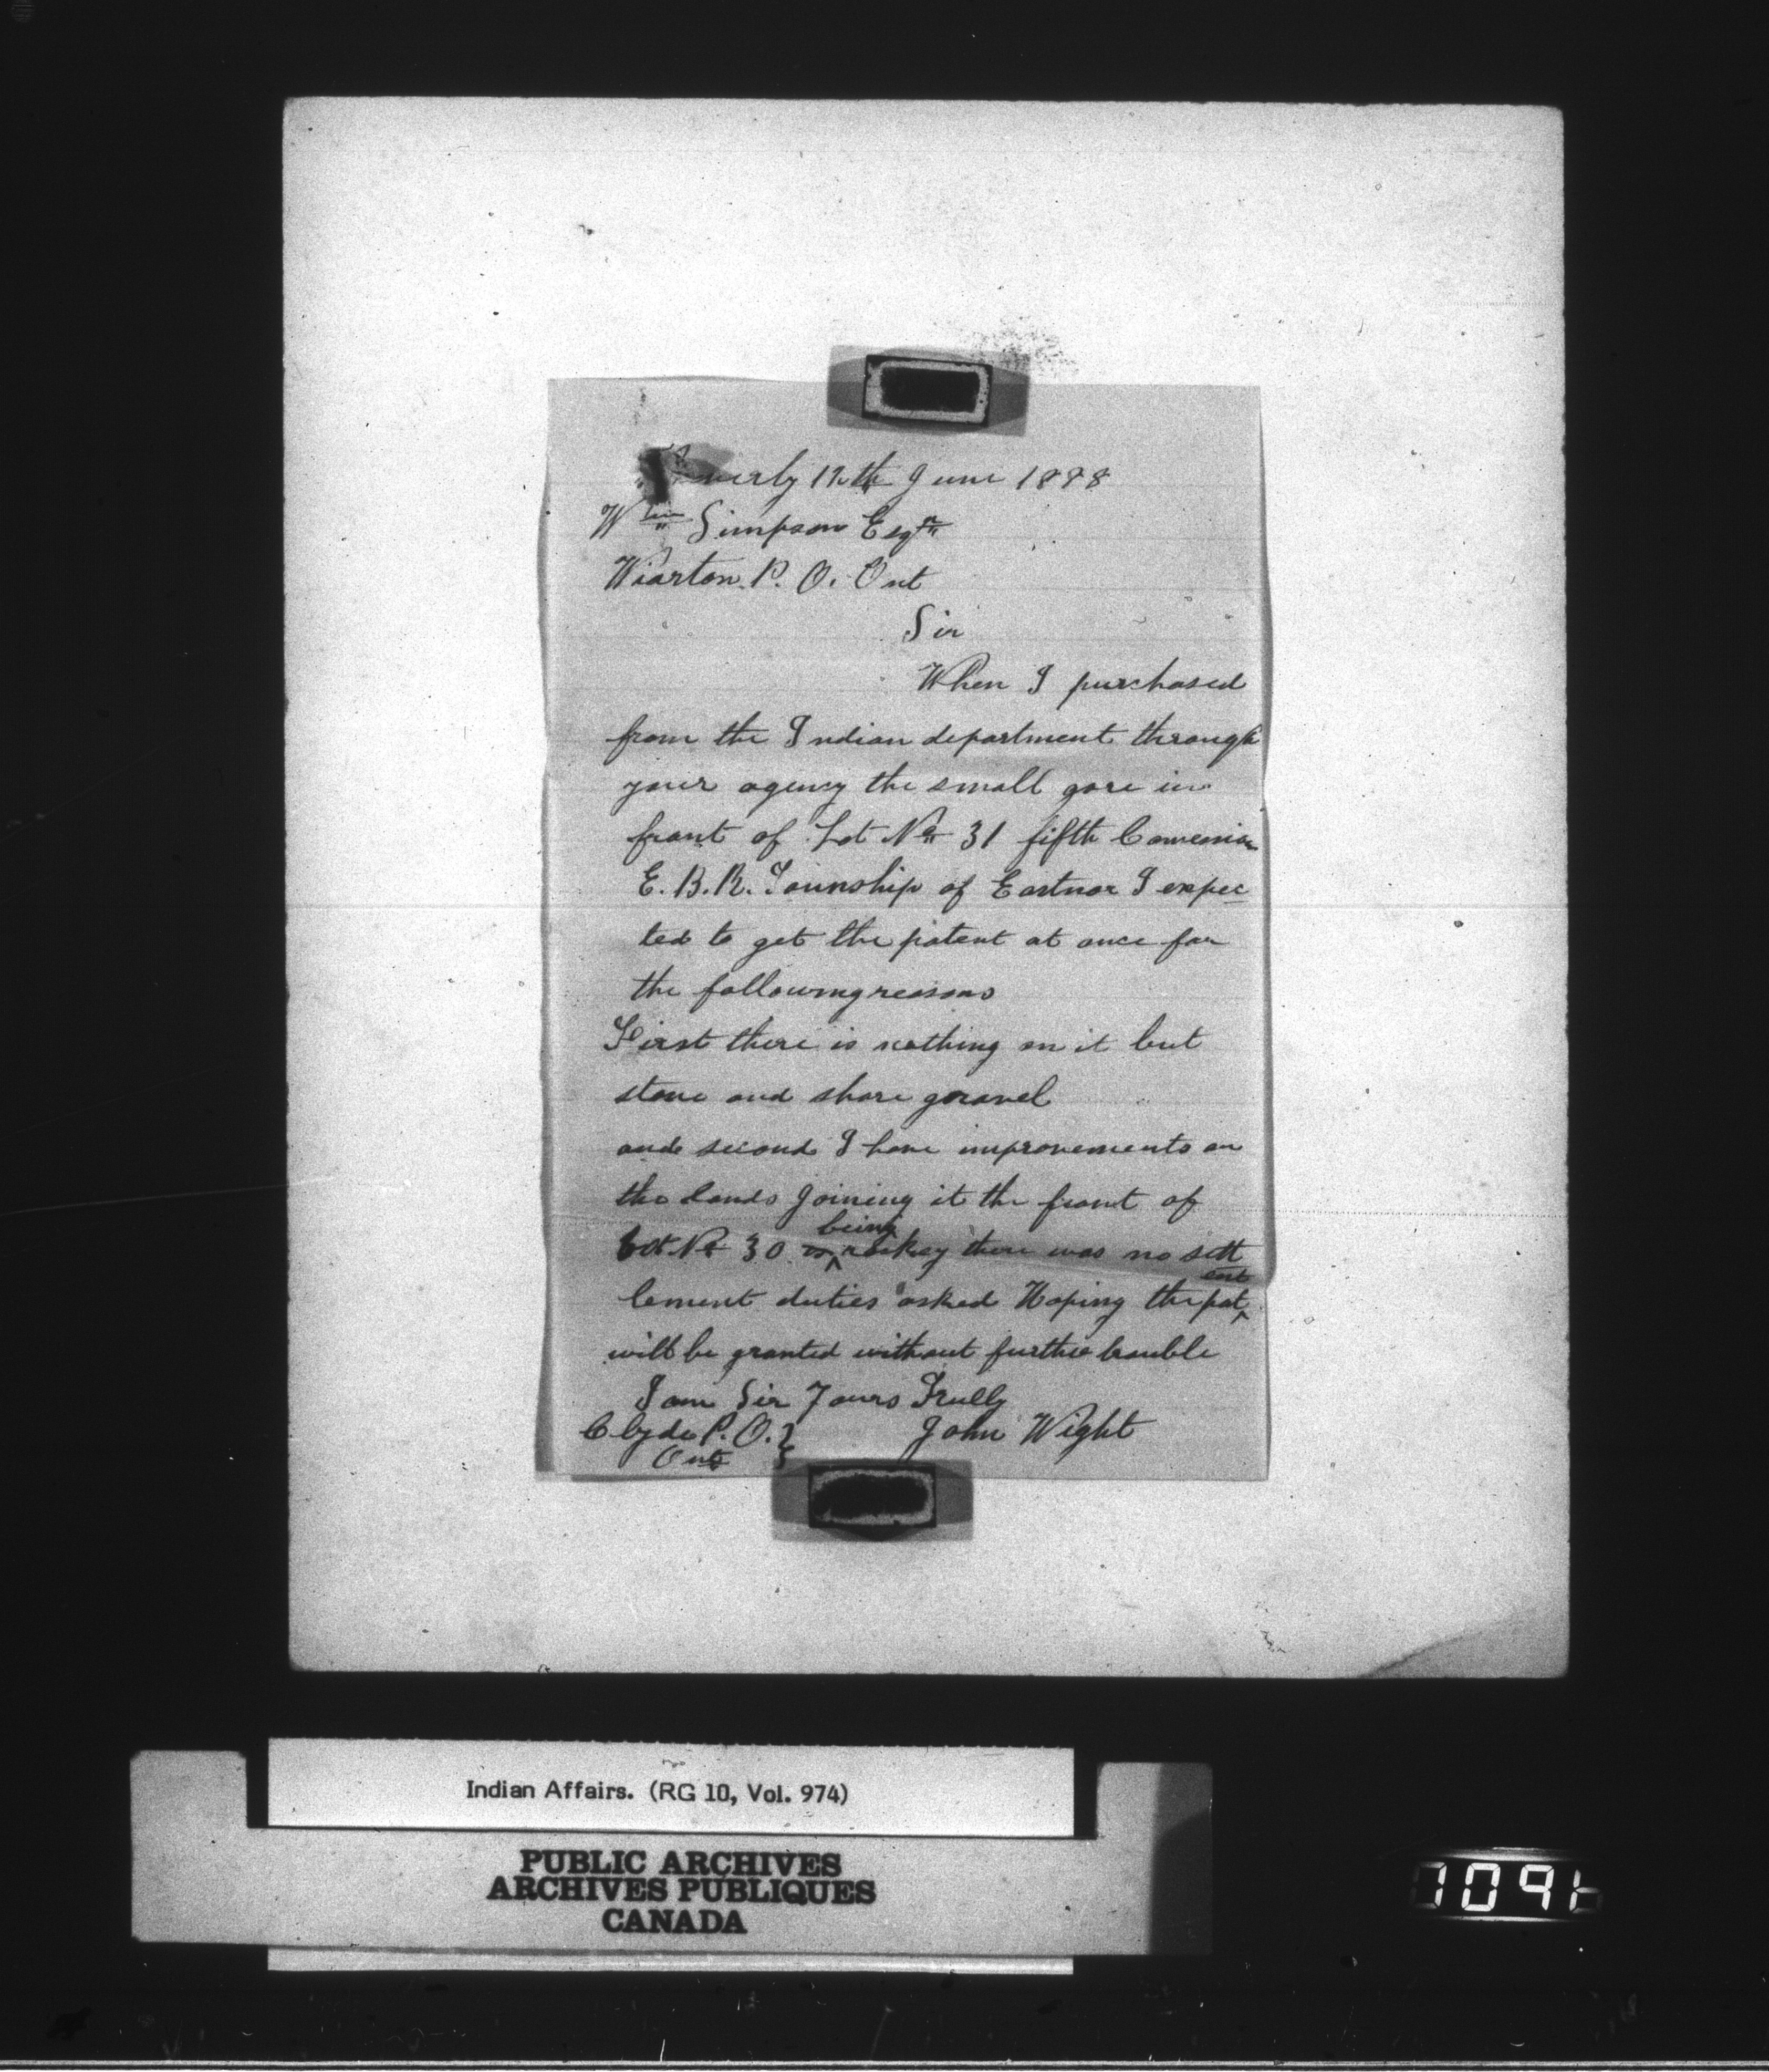 Beverly 12th June 1888
Wm Simpson Esqr
Wiarton P. O. Ont
Sir
When I purchased
from the Indian department through
your agency the small gore in
front of Lot No 31 fifth Concession
E. B. R. Township of Eastnor I expec
ted to get the patent at once for
the following reasons
First there is nothing on it but
stone and shore gravel
and second I have improvements on
the lands joining it the front of
being
Lot No 30 rockey there was no sett
ent
lement duties asked Hoping the pat
will be granted without further trouble
I am Sir Yours Trully
Clyde P. O. John Wight
Ont
Indian Affairs. (RG 10, Vol. 974)
PUBLIC ARCHIVES
ARCHIVES PUBLIQUES
CANADA